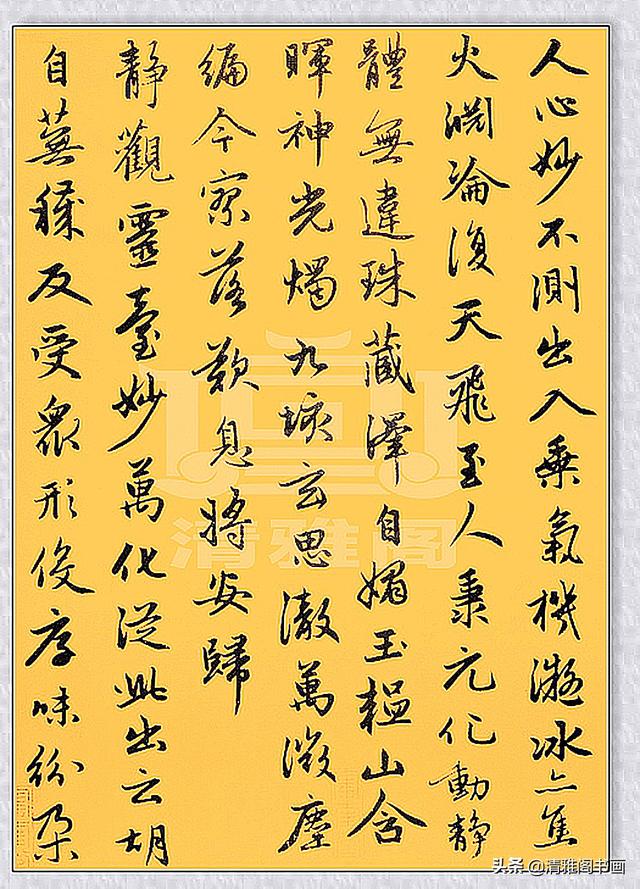 人心妙不測出入乘氣機凝冰亦焦
火淵淪復天飛至人秉元化動靜
體無違珠藏澤自媚玉韞山含
暉神光燭九垓玄思徹萬微塵
編今寥落歎息將安歸
靜觀靈臺妙萬化從此出云胡
自蕪穢反受衆形役厚味紛朶
清雅阁
头条 @清雅阁书画